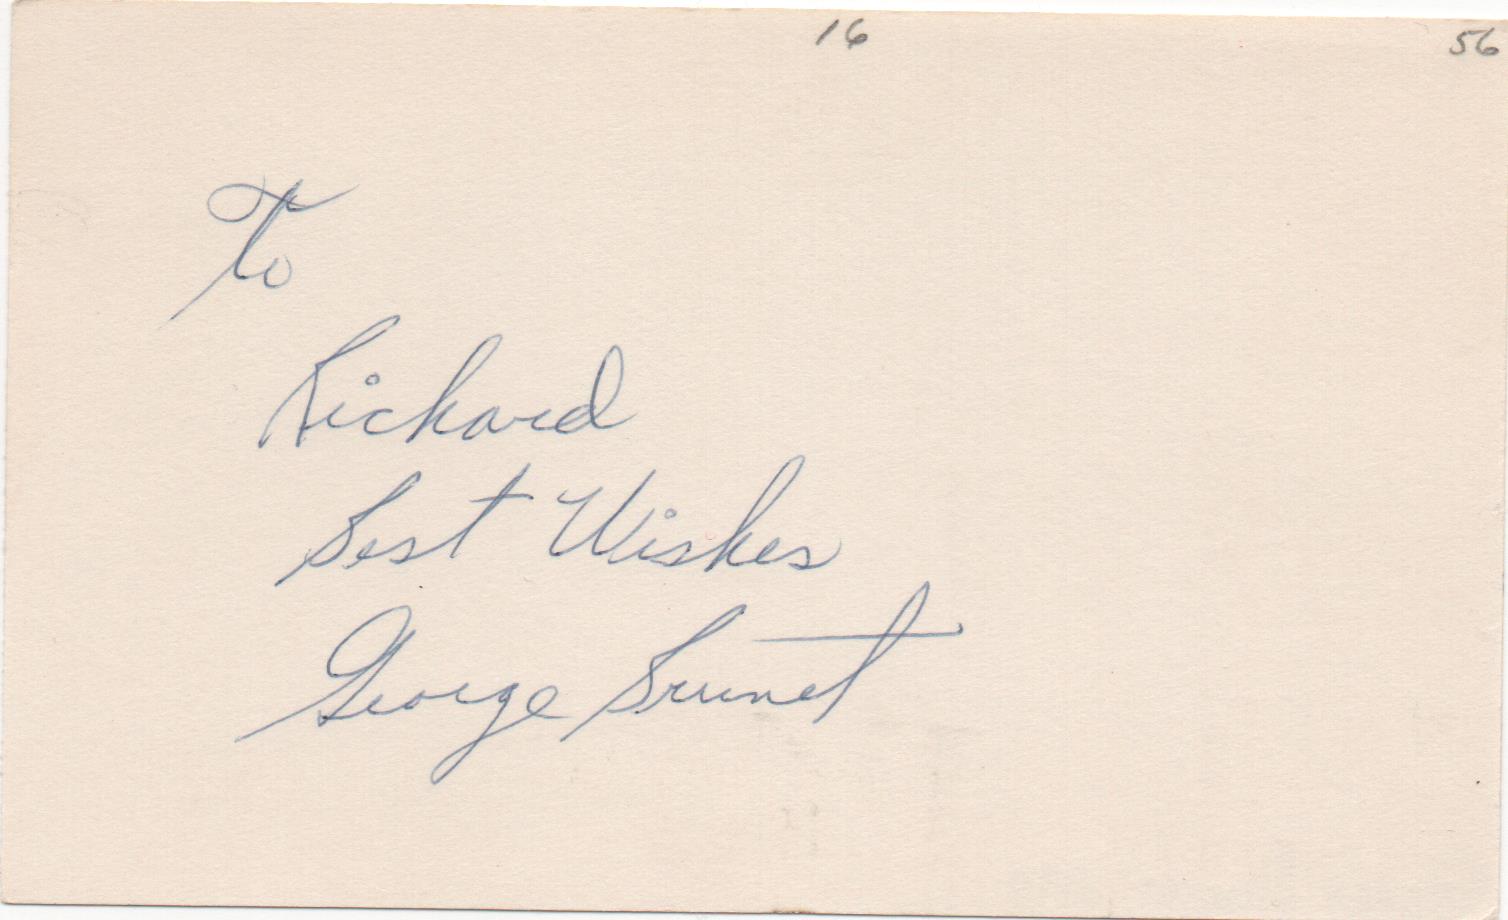 16 56
To
Richard
Best Wishes
George Brunet